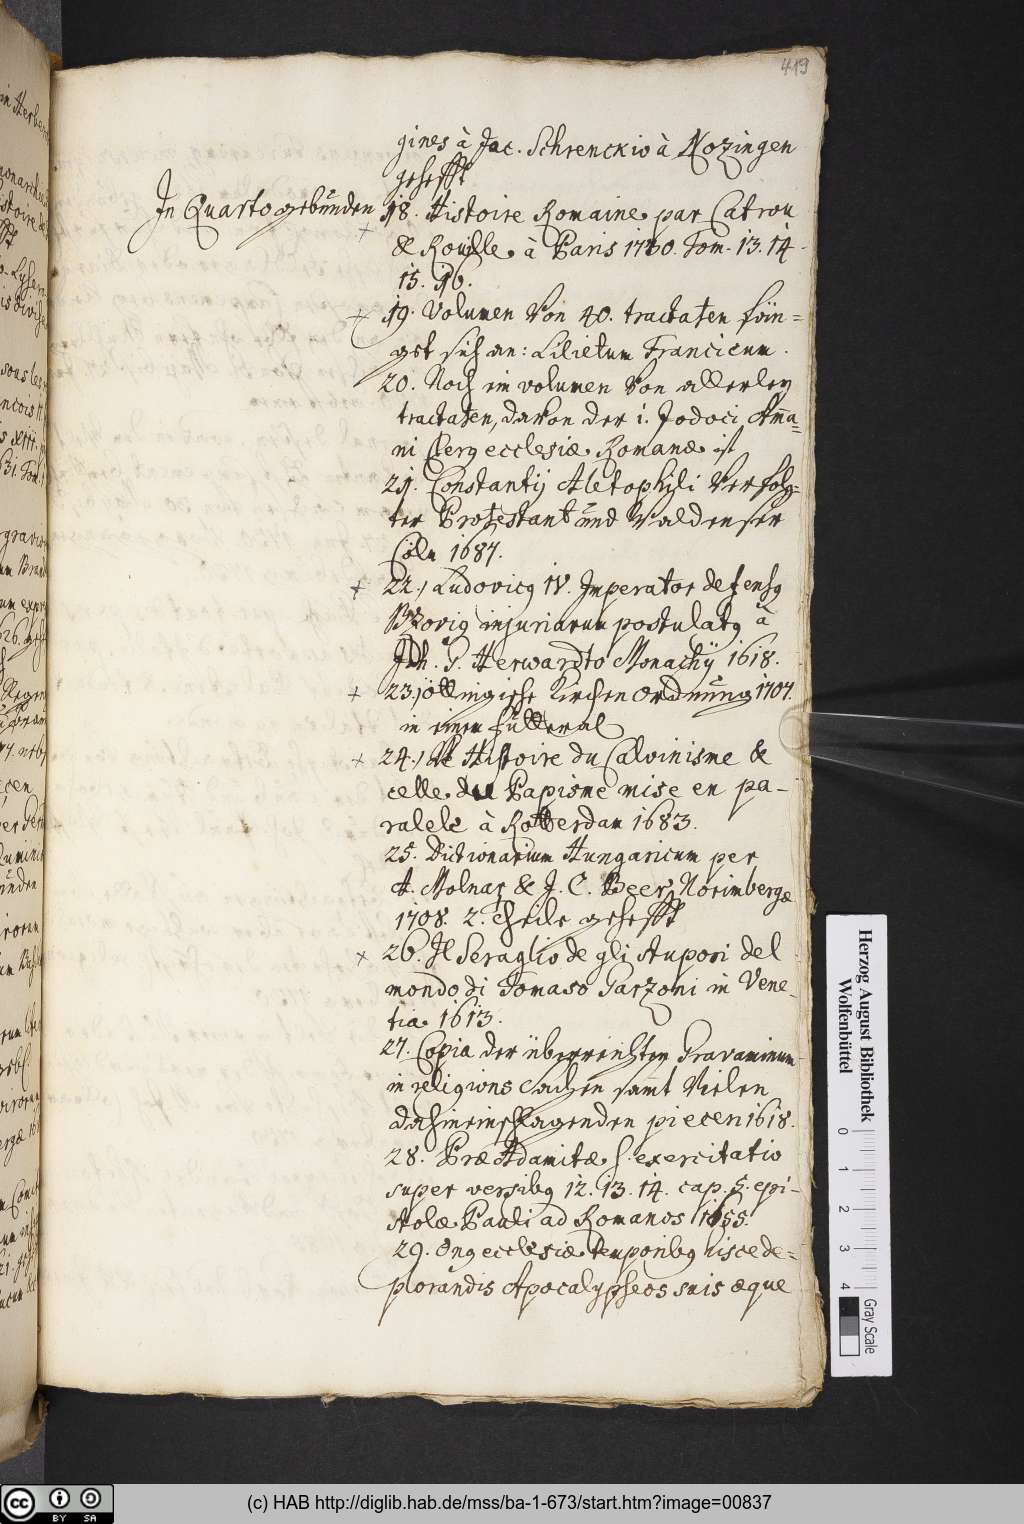 419
gines à Jac. Schrenckio à Nozingen
gehefft
In Quarto gebunden 18. Histoire Romaine par Catrou
& Rouille à Paris 1730. Tom. 13. 14.
15. 16.
19. Volumen von 40. tractaten fän=
get sich an: Lilietum Francicum.
20. Noch ein volumen von allerley
tractaten, davon der 1. Jodoci Am̄a=
ni Clerg ecclesiæ Romanæ ist
21. Constantij Aletophili Verfolg=
ter Protestant und Valdenser
Cöln 1687.
22.) Ludovicg IV. Imperator defensg
Bzovig injuriarum postulatg à
Joh. G. Herwardto Monachij 1618.
23.) öttingische Kirchen Ordnung 1707.
in einem Futteral
24.) Histoire du Calvinisme &
celle du Papisme mise en pa-
ralele à Rotterdam 1683.
25. Dictionarium Hungaricum per
A. Molnar & J. C. Beer, Norimbergæ
1708. 2. theile gehefft
26. Il Seraglio de gli stupori del
mondo di Tomaso Garzoni in Vene-
tia 1613.
27. Copia der überreichten Gravaminum
in religions Sachen sam̄t Vielen
dahineinschlagenden piecen 1618.
28. Præ Adamitæ s. exercitatio
super versibg 12. 13. 14. cap. 5. epi-
stolæ Pauli ad Romanos 1655.
29. Ong ecclesiæ temporibg hisce de=
plorandis Apocalypseos suis æque
Herzog August Bibliothek
Wolfenbüttel
0 1 2 3 4
Gray Scale
(c) HAB http://diglib.hab.de/mss/ba-1-673/start.htm?image=00837
cc BY SA